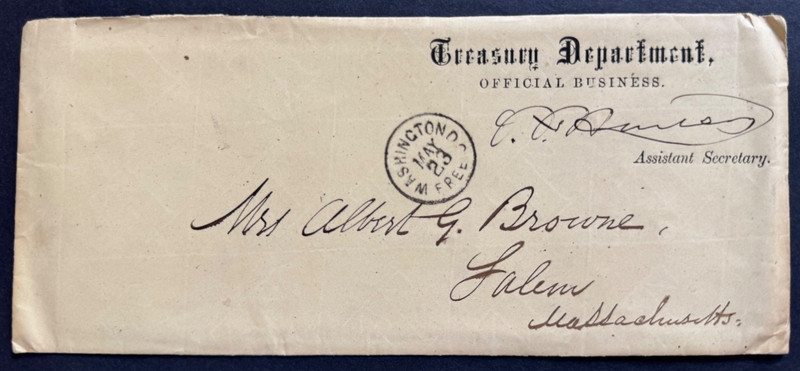 Treasury Department,
OFFICIAL BUSINESS.
Assistant Secretary.
WASHINGTON D.C.
MAY
23
FREE
Mrs Albert G. Browne,
Salem
Massachusetts.